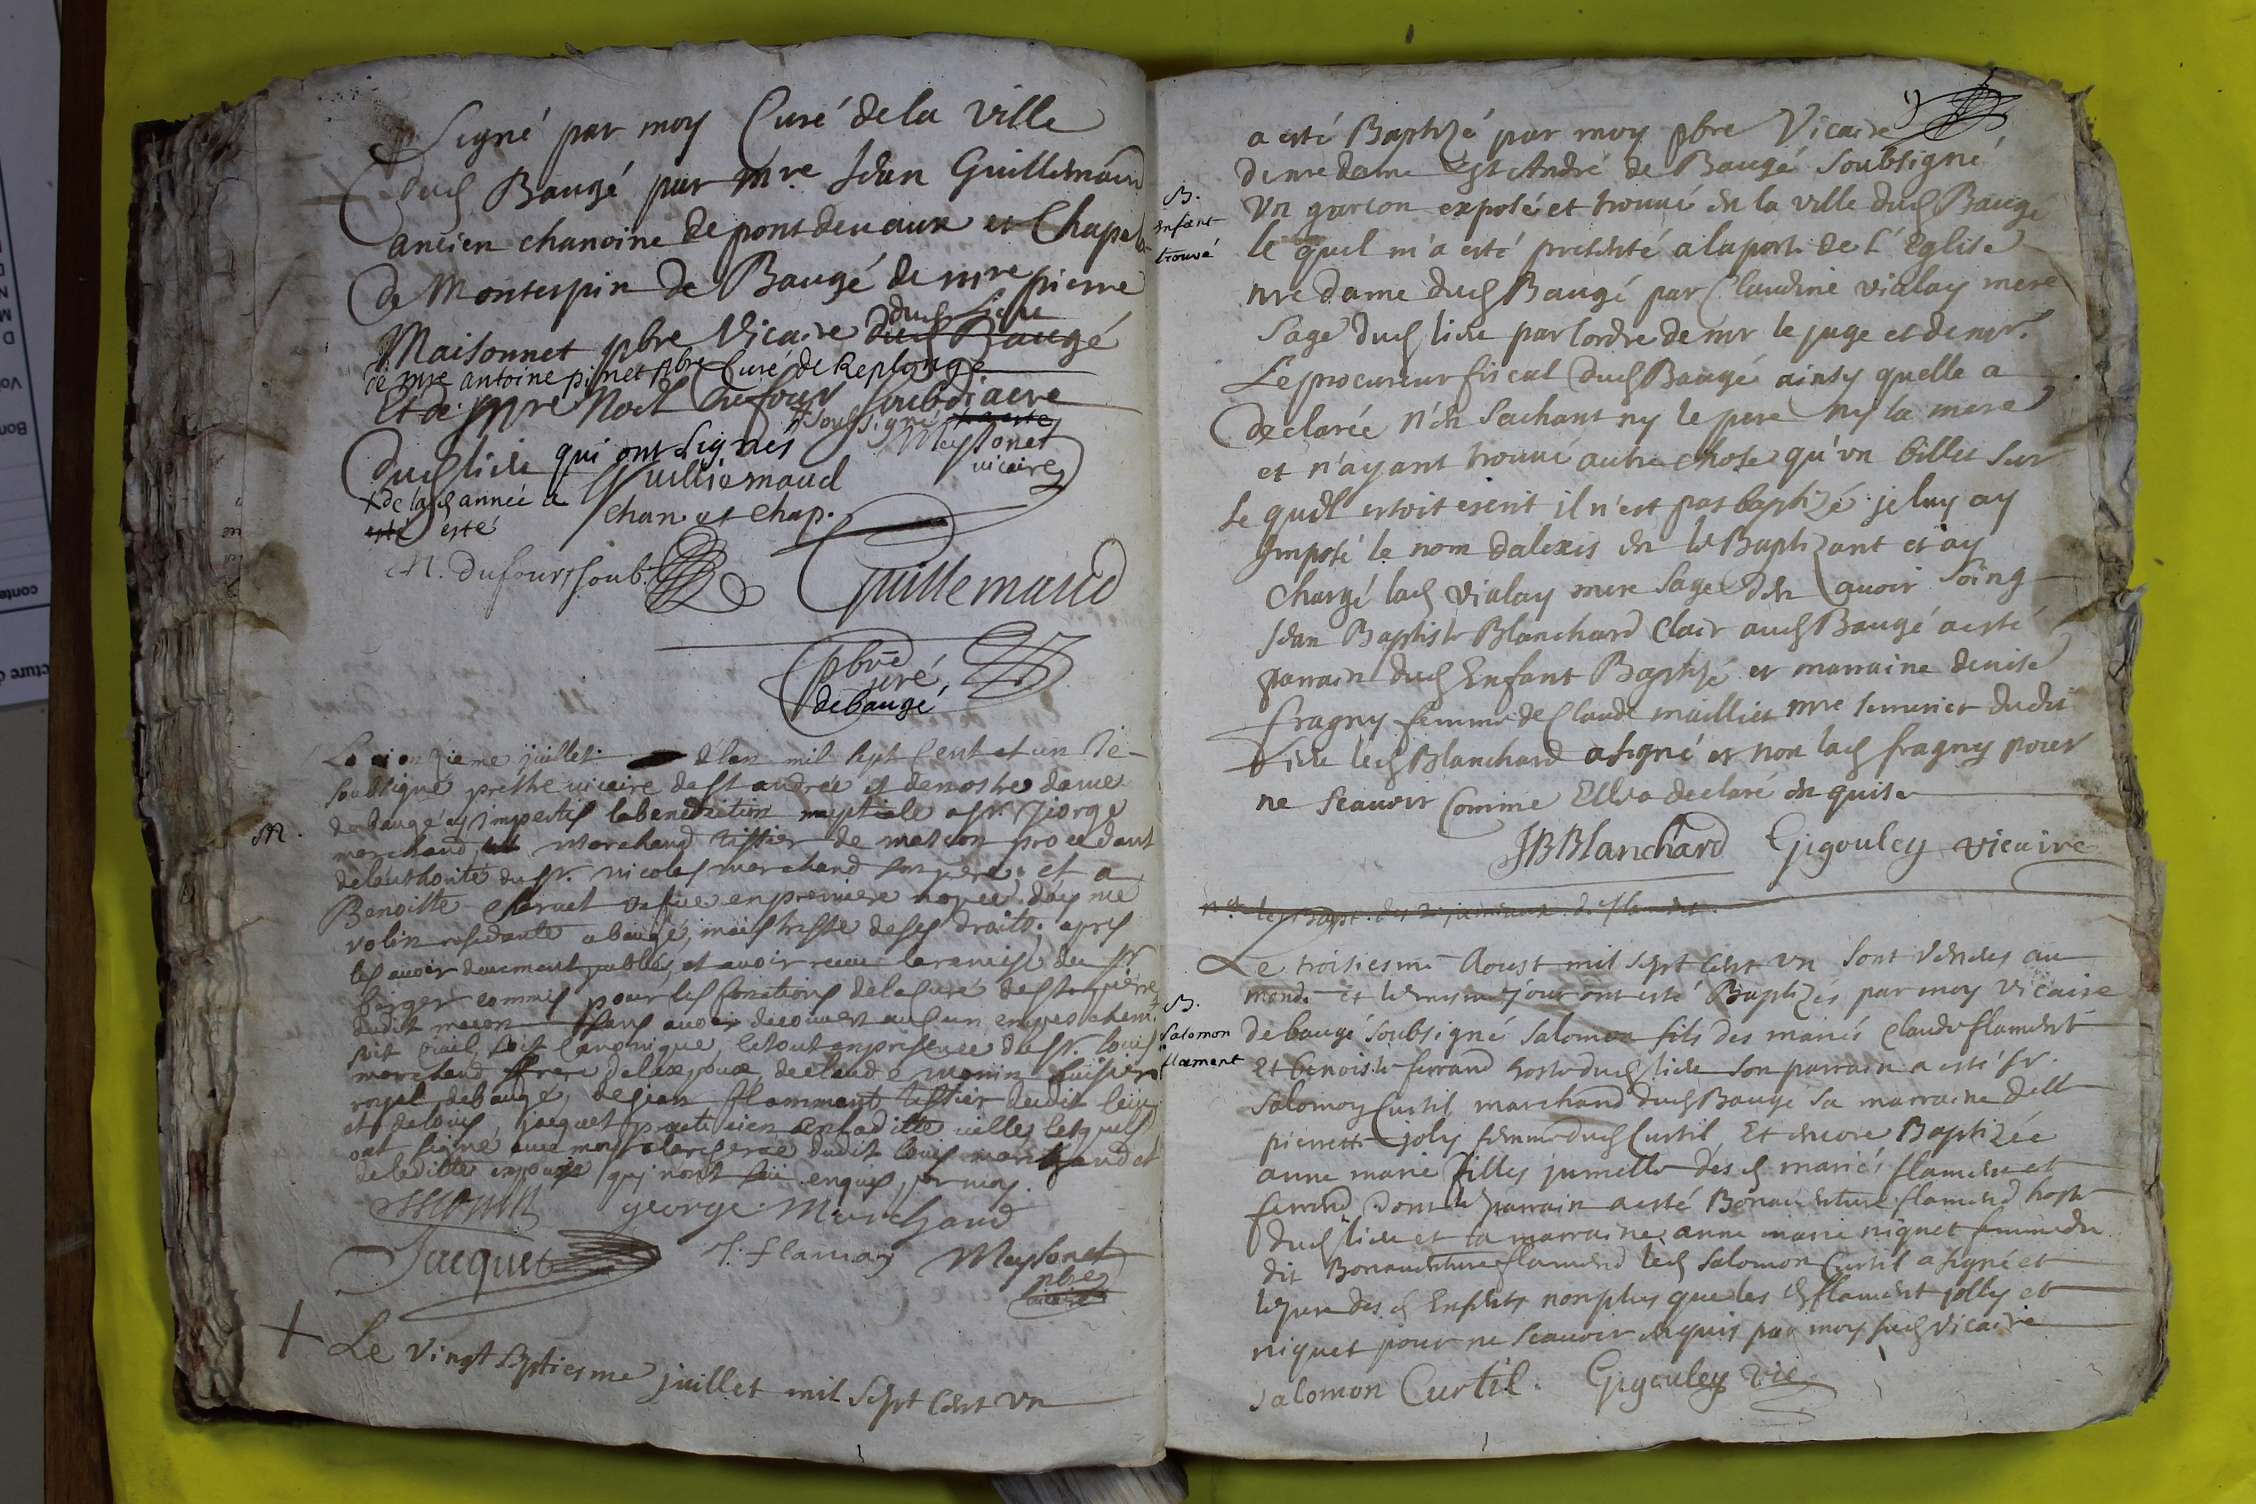 Signé par moy Curé de la ville
dud Baugé par mre Jean Guillemaud
ancien chanoine de pontdevaux et Chapelain
de Monterpin de Baugé de mre pierre
Maisonnet pbre Vicaire dud Baugé
dud lieu
de mre antoine pinet pbre Curé de Replonge
Et de mre Noel Dufour soubdiacre
dud lieu qui ont signés soussigné
Meysonet
vicaire
Guilliemaud
chan. et chap.
+ de lad année a
esté esté
N. Dufour soub.
Guillemaud
pbre
curé
de baugé
M.
Le onzieme juillet de lan mil sept cent et un Je
soubsigné prestre vicaire de st andrée et de nostre dame
de baugé ay impertis la benediction nuptiale a sr. George
marchand marchand tissier de mascon procedant
de lauthorité du sr. nicolas marchand son pere, et a
Benoitte veufve en premiere nopce
volin residante a baugé, maistresse de ses droits; apres
les avoir deuement publiés, et avoir receu la remise du sr
commis pour les fonctions de la cure de st pierre
dudit macon sans avoir decouvert aucun empeschem
soit civil, soit canonique, le tout en presence du sr. louis
marchand frere de lexpoux, de claude monin huissier
royal de baugé, de jean flammant tissier dudit lieu
et de louis jacquet praticien en laditte ville lesquels
ont signé avec moy a la reserve dudit louis marchand et
de laditte expouse qui n'ont sceu enquis par moy.
Monin george Marchand
Jacquet J. flaman Meysonet
pbre
vicaire
+ Le vingt septiesme juillet mil sept cent un
a esté Baptizé par moy pbre Vicaire
de nre dame et st André de Baugé soubsigné
B.
enfant
trouvé
un garcon exposé et trouvé en la ville dud Baugé
le quel m'a esté presenté a la porte de l'Eglise
nre dame dud Baugé par Claudine vialay mere
sage dud lieu par l'ordre de mr le juge et de mr.
Le procureur fiscal dud Baugé ainsy quelle a
declarée n'en sachant ny le pere ny la mere
et n'ayant trouvé autre chose qu'un billet sur
le quel estoit escrit il n'est pas baptizé je luy ay
Imposé le nom dalexis en le Baptizant et ay
chargé lad vialay mere sage d'en avoir soing
Jean Baptiste Blanchard Clerc aud Baugé a esté
parrain dud Enfant Baptizé et marraine denise
fragny femme de Claude maillier mre dudit
lieu led Blanchard a signé et non lad fragny pour
ne scavoir Comme Elle a declaré en quise
JBBlanchard Gigouley vicaire
Le troisiesme Aoust mil sept cent un sont venues au
monde et le mesme jour ont esté Baptizés par moy vicaire
B.
Salomon
flament
de baugé soubsigné Salomon fils des mariés Claude flament
Et benoiste ferrand hoste dud lieu son parrain a esté sr.
Salomon Curtil marchand dud Baugé sa marraine delle
pierrette joly femme dud Curtil, Et encore Baptizée
anne marie filles jumelle des d mariés flament et
ferrand, dont le parrain a esté Bonaventure flamend hoste
dud lieu et la marraine anne marie niquet femme du
dit Bonaventure flamend led salomon Curtil a signé et
le pere des d Enfants non plus que les d flament jolly et
niquet pour ne scavoir enquis par moy sud Vicaire
Salomon Curtil. Gigouley vic